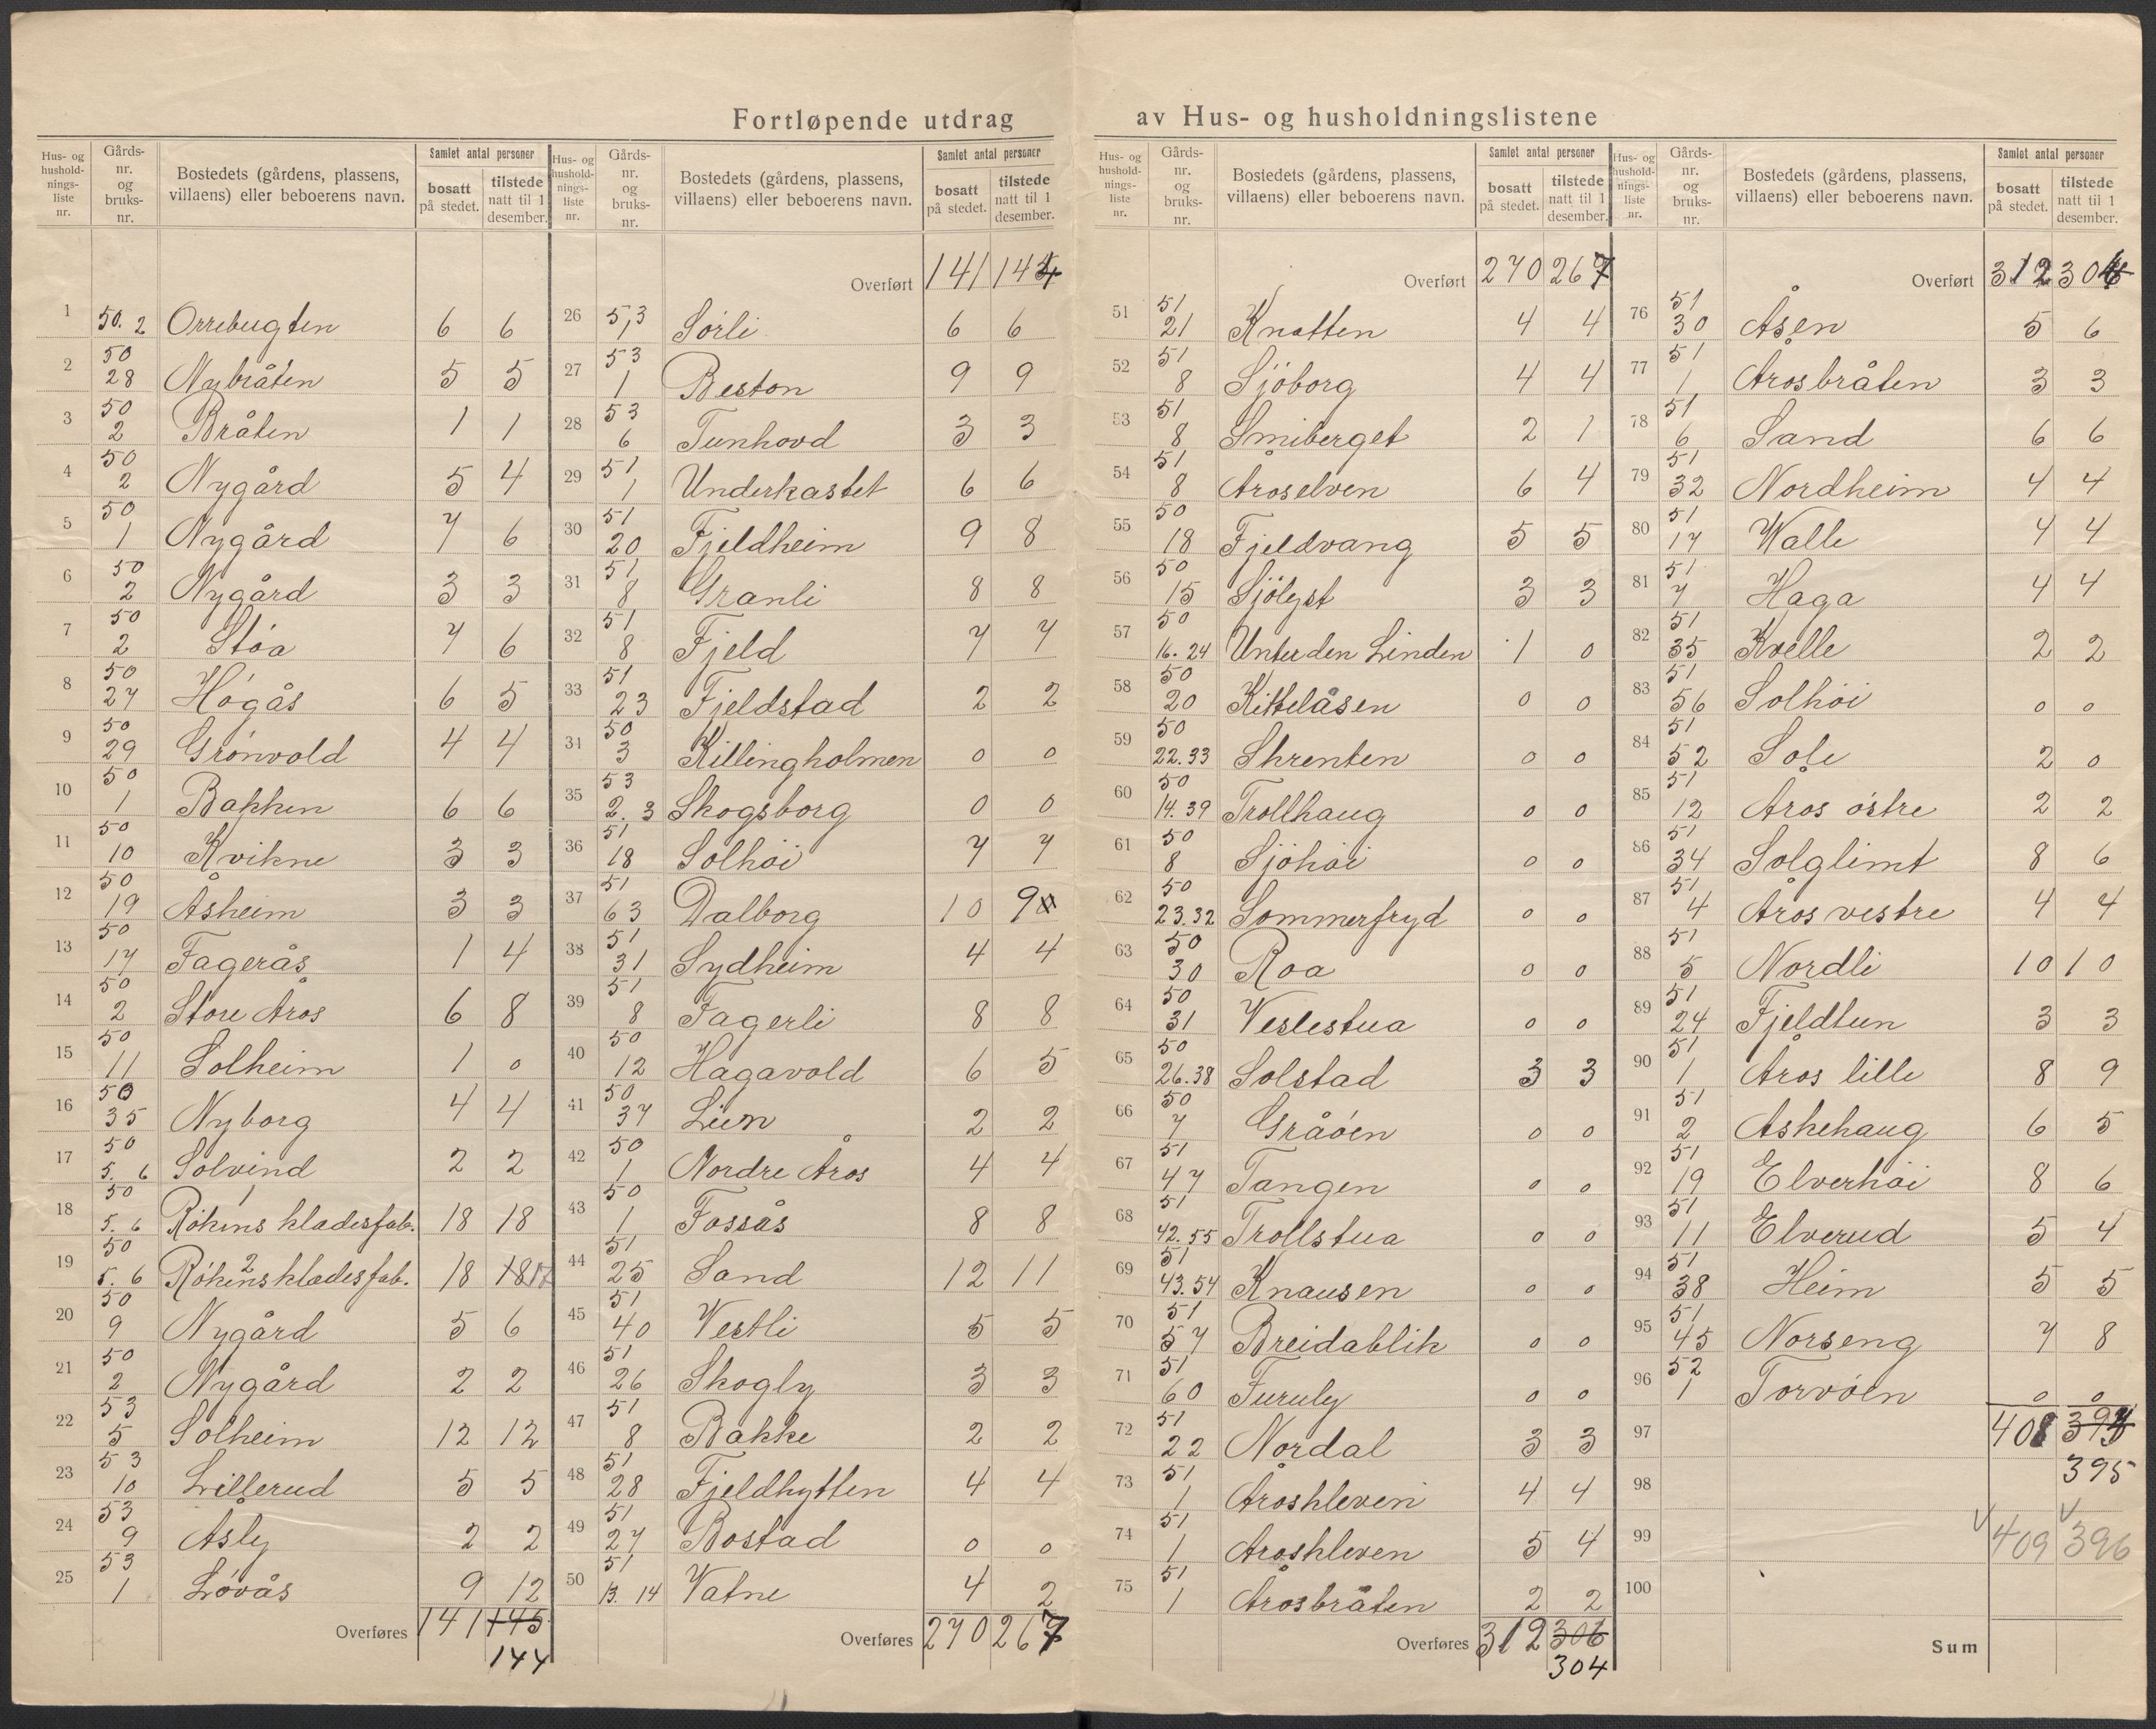 Fortløpende utdrag av Hus- og husholdningslistene
Hus- og husholdnings-liste nr. | Gårds-nr. og bruks-nr. | Bostedets (gårdens, plassens, villaens) eller beboerens navn. | Samlet antal personer bosatt på stedet. | tilstede natt til 1 desember.
1 50. 2 Orrebugten 6 6
2 50 28 Nybråten 5 5
3 50 2 Bråten 1 1
4 50 2 Nygård 5 4
5 50 1 Nygård 7 6
6 50 2 Nygård 3 3
7 50 2 Støa 7 6
8 50 27 Høgås 6 5
9 50 29 Grønvold 4 4
10 50 1 Bakken 6 6
11 50 10 Kvikne 3 3
12 50 19 Åsheim 3 3
13 50 17 Fagerås 1 4
14 50 2 Store Åros 6 8
15 50 11 Solheim 1 0
16 50 35 Nyborg 4 4
17 50 5. 6 Solvind 2 2
18 50 5. 6 Røkens kladesfab. 1 18 18
19 50 5. 6 Røkens kladesfab. 2 18 18 17
20 50 9 Nygård 5 6
21 50 2 Nygård 2 2
22 53 5 Solheim 12 12
23 53 10 Lillerud 5 5
24 53 9 Åsly 2 2
25 53 1 Løvås 9 12
Overføres 141 145
144
Hus- og husholdnings-liste nr. | Gårds-nr. og bruks-nr. | Bostedets (gårdens, plassens, villaens) eller beboerens navn. | Samlet antal personer bosatt på stedet. | tilstede natt til 1 desember.
Overført 141 144
26 53 1 Sørli 6 6
27 53 1 Beston 9 9
28 53 6 Tunhovd 3 3
29 51 1 Underkastet 6 6
30 51 20 Fjeldheim 9 8
31 51 8 Granli 8 8
32 51 8 Fjeld 7 7
33 51 23 Fjeldstad 2 2
34 50 3 Killingholmen 0 0
35 53 2. 3 Skogsborg 0 0
36 51 18 Solhøi 7 7
37 51 63 Dalborg 10 9
38 51 31 Sydheim 4 4
39 51 8 Fagerli 8 8
40 50 12 Hagavold 6 5
41 50 37 Lien 2 2
42 50 1 Nordre Åros 4 4
43 50 1 Fossås 8 8
44 51 25 Sand 12 11
45 51 40 Vestli 5 5
46 51 26 Skogly 3 3
47 51 8 Bakke 2 2
48 51 28 Fjeldhytten 4 4
49 51 27 Bostad 0 0
50 51 13. 14 Vatne 4 2
Overføres 270 267
Hus- og husholdnings-liste nr. | Gårds-nr. og bruks-nr. | Bostedets (gårdens, plassens, villaens) eller beboerens navn. | Samlet antal personer bosatt på stedet. | tilstede natt til 1 desember.
Overført 270 267
51 51 21 Knatten 4 4
52 51 8 Sjøborg 4 4
53 51 8 Smiberget 2 1
54 51 8 Åroselven 6 4
55 50 18 Fjeldvang 5 5
56 50 15 Sjølyst 3 3
57 50 16. 24 Unter den Linden 1 0
58 50 20 Kittelåsen 0 0
59 50 22. 33 Skrenten 0 0
60 50 14. 39 Trollhaug 0 0
61 50 8 Sjøhøi 0 0
62 50 23. 32 Sommerfryd 0 0
63 50 30 Roa 0 0
64 50 31 Veslestua 0 0
65 50 26. 38 Solstad 3 3
66 50 7 Gråøen 0 0
67 51 47 Tangen 0 0
68 51 42. 55 Trollstua 0 0
69 51 43. 54 Knausen 0 0
70 51 57 Breidablik 0 0
71 51 60 Furuly 0 0
72 51 22 Nordal 3 3
73 51 1 Åroskleven 4 4
74 51 1 Åroskleven 5 4
75 51 1 Årosbråten 2 2
Overføres 312 306
304
Hus- og husholdnings-liste nr. | Gårds-nr. og bruks-nr. | Bostedets (gårdens, plassens, villaens) eller beboerens navn. | Samlet antal personer bosatt på stedet. | tilstede natt til 1 desember.
Overført 312 304
76 51 30 Åsen 5 6
77 51 1 Årosbråten 3 3
78 51 6 Sand 6 6
79 51 32 Nordheim 4 4
80 51 17 Walle 4 4
81 51 7 Haga 4 4
82 51 35 Kvelle 2 2
83 51 56 Solhøi 0 0
84 51 52 Sole 2 0
85 51 12 Åros østre 2 2
86 51 34 Solglimt 8 6
87 51 4 Åros vestre 4 4
88 51 5 Nordli 10 10
89 51 24 Fjeldtun 3 3
90 51 1 Åros lille 8 9
91 51 2 Askehaug 6 5
92 51 19 Elverhøi 8 6
93 51 11 Elverud 5 4
94 51 38 Heim 5 5
95 51 45 Norseng 7 8
96 52 1 Torvøen 0 0
97 408
98 395
99 409 396
100
Sum